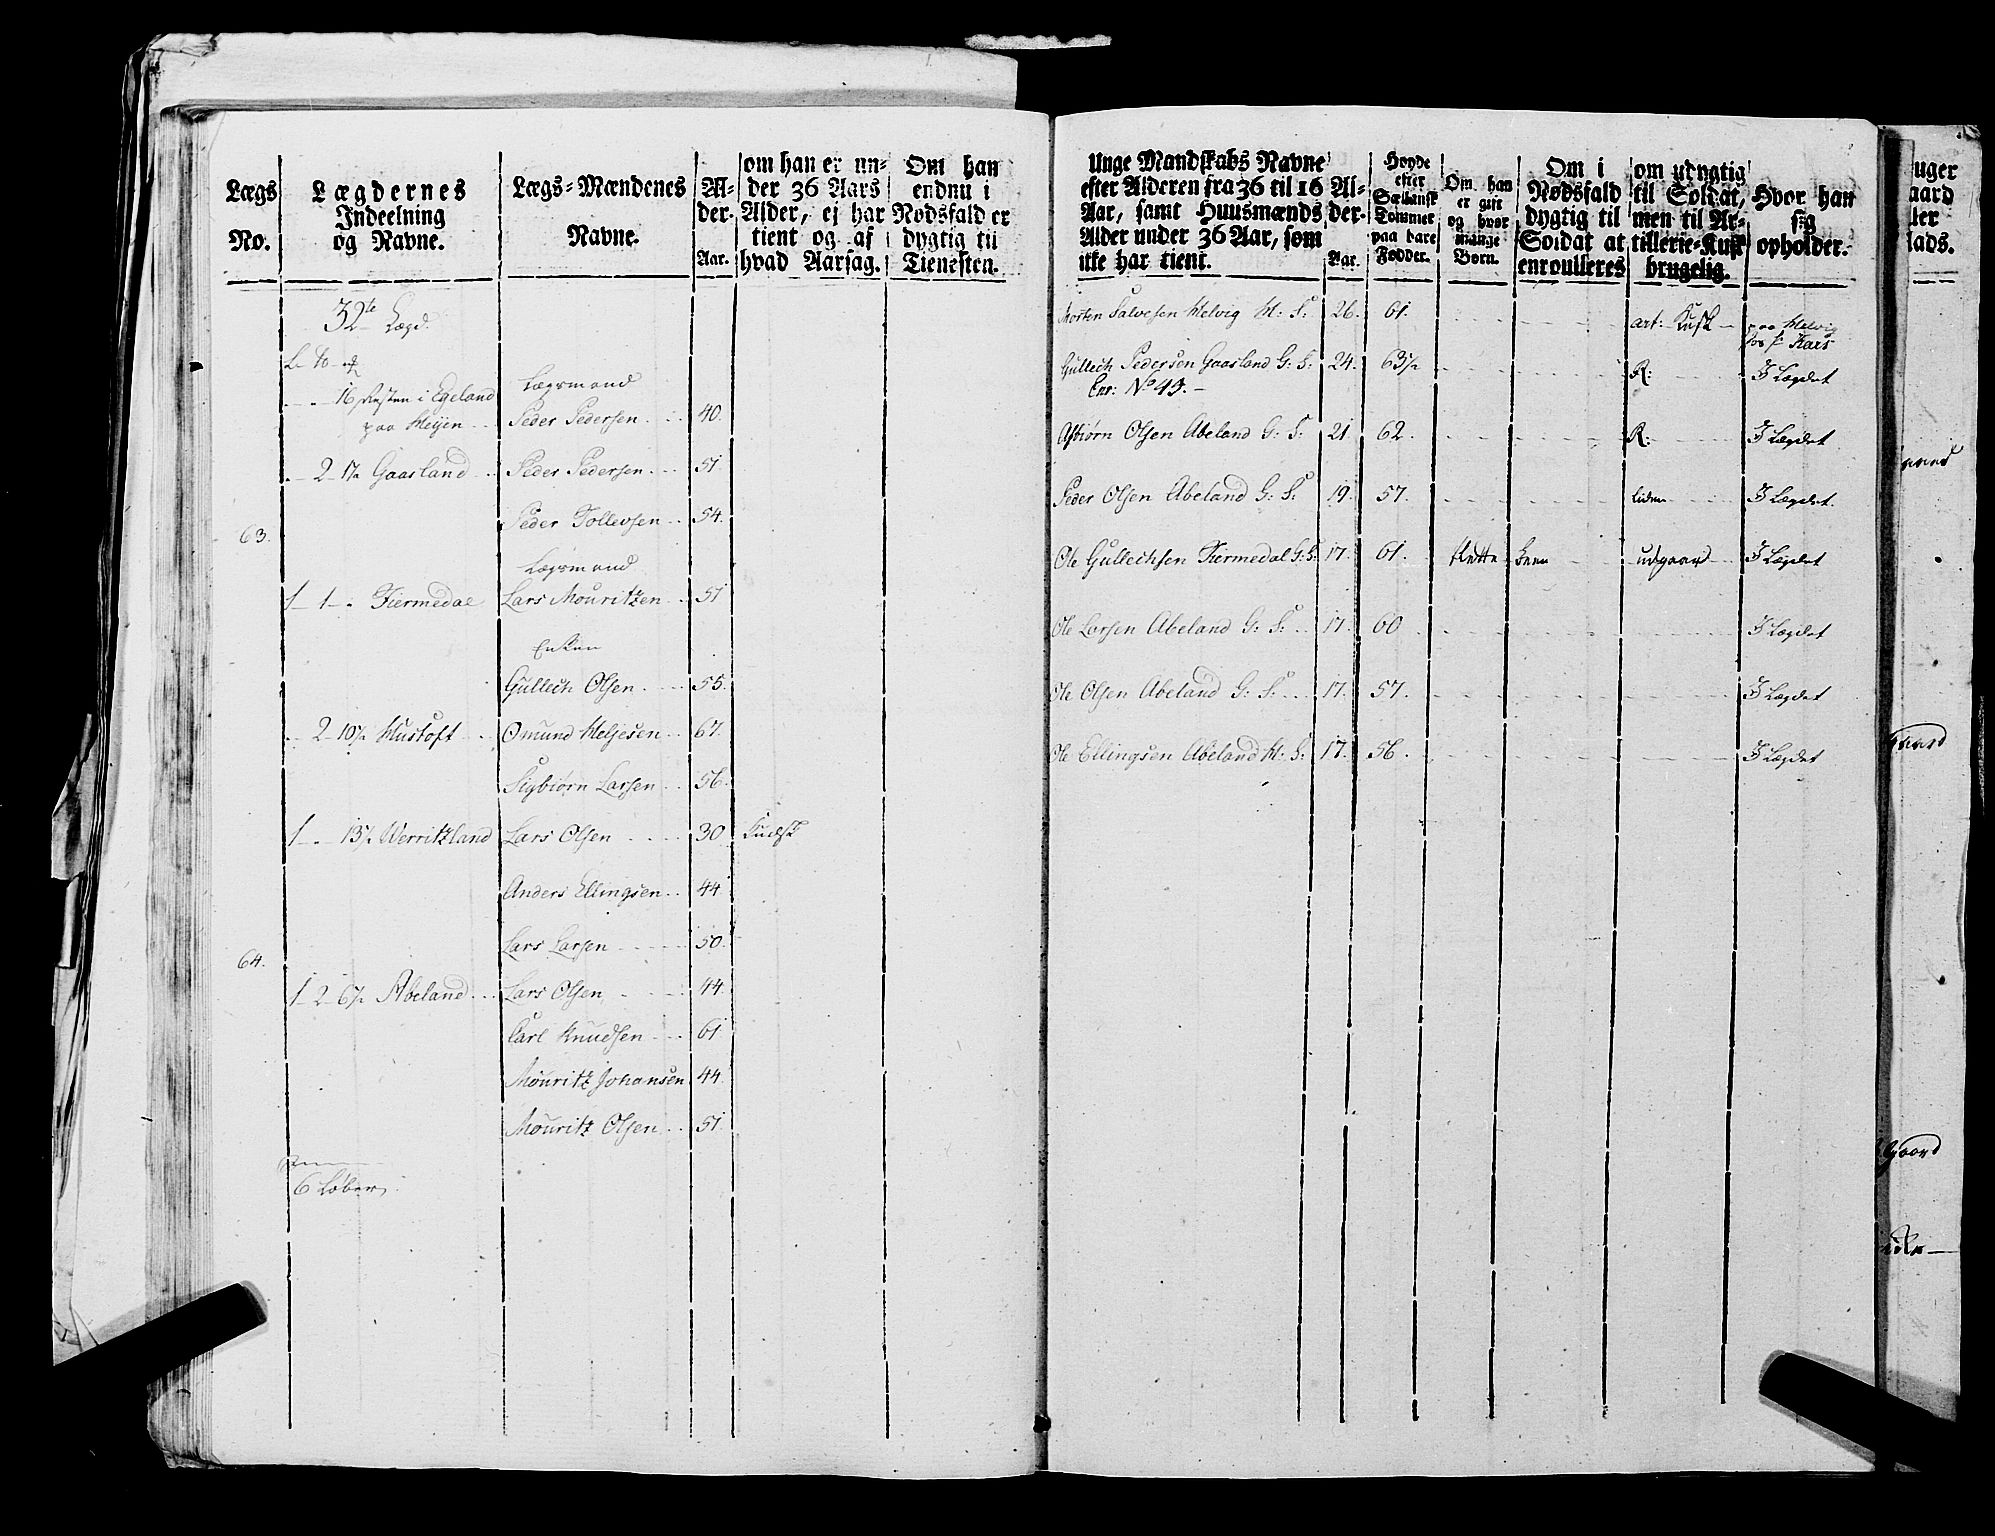 Lægs No.
Lægdernes Indeelning og Navne.
Lægs-Mændenes Navne.
Al-der. Aar.
om han er un-der 36 Aars Alder, ej har tient og af hvad Aarsag.
Om han endnu i Nødsfald er dygtig til Tienesten.
32te Lægd.
16 Resten i Egeland
Lægsmand
paa Heijen Peder Pedersen 40.
2 - 1½ Gaasland Peder Pedersen 51
Peder Tollevsen 54.
63.
Lægsmand
1 - 1 - " Fiermedal Lars Mouritzen 51
Enken
Gullech Olsen 55.
2 - 10½ Hustoft Omund Heljesen 67.
Sigbiørn Larsen 56.
1 - " - 13½ Werritzland Lars Olsen 30 Kudsk
Anders Ellingsen 44
Lars Larsen 50.
64.
1 - 2 - 6½ Abeland Lars Olsen 44
Carl Knudsen 61
Mouritz Johansen 44
Mouritz Olsen 51.
6 Løber
Unge Mandskabs Navne efter Alderen fra 36 til 16 Aar, samt Huusmænds Alder under 36 Aar, som ikke har tient.
Al-der. Aar.
Høyde efter Sællandsk Tommer paa bare Fødder.
Om han er gift og hvor mange Børn.
Om i Nødsfald dygtig til Soldat at enroulleres
om udygtig til Soldat, men til Ar-tillerie-Kusk brugelig.
Hvor han sig opholder.
Morten Salvesen Helvig H: S: 26. 61. art: Kusk paa Helvig
Gullech Pedersen Gaasland G: S: 24. 63½ R: I Lægdet
Enr: No 43.
Asbiørn Olsen Abeland G: S: 21 62. R: I Lægdet
Peder Olsen Abeland G: S: 19. 57. liden I Lægdet
Ole Gullechsen Fiermedal G: S: 17. 61. udgaar I Lægdet
Ole Larsen Abeland G: S: 17. 60 I Lægdet
Ole Olsen Abeland G: S: 17. 57. I Lægdet
Ole Ellingsen Abeland H: S: 17. 56. I Lægdet
uger
aard
ler
lads.